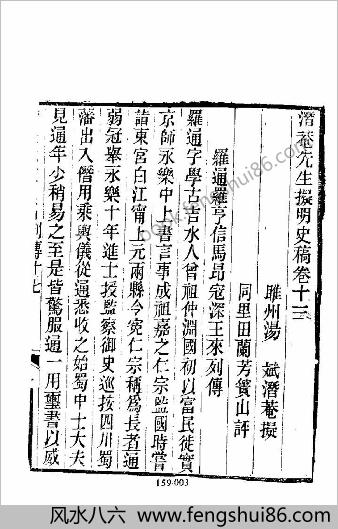 潛菴先生擬明史稿卷十三
睢州湯 斌潛菴擬
同里田蘭芳簣山評
羅通羅亨信馬昂寇深王來列傳
羅通字學古吉水人曾祖仲淵國初以富民徙實
京師永樂中上書言事成祖嘉之仁宗監國時嘗
詣東宮白江甯上元兩縣令寃仁宗稱為長者通
弱冠舉永樂十年進士授監察御史巡按四川蜀
藩出入僭用乘輿儀從通悉收之始蜀中士大夫
見通年少稍易之至是皆驚服通一用璽書以威
159-003
book.fengshui86.com
风水八六－www.fengshui86.com